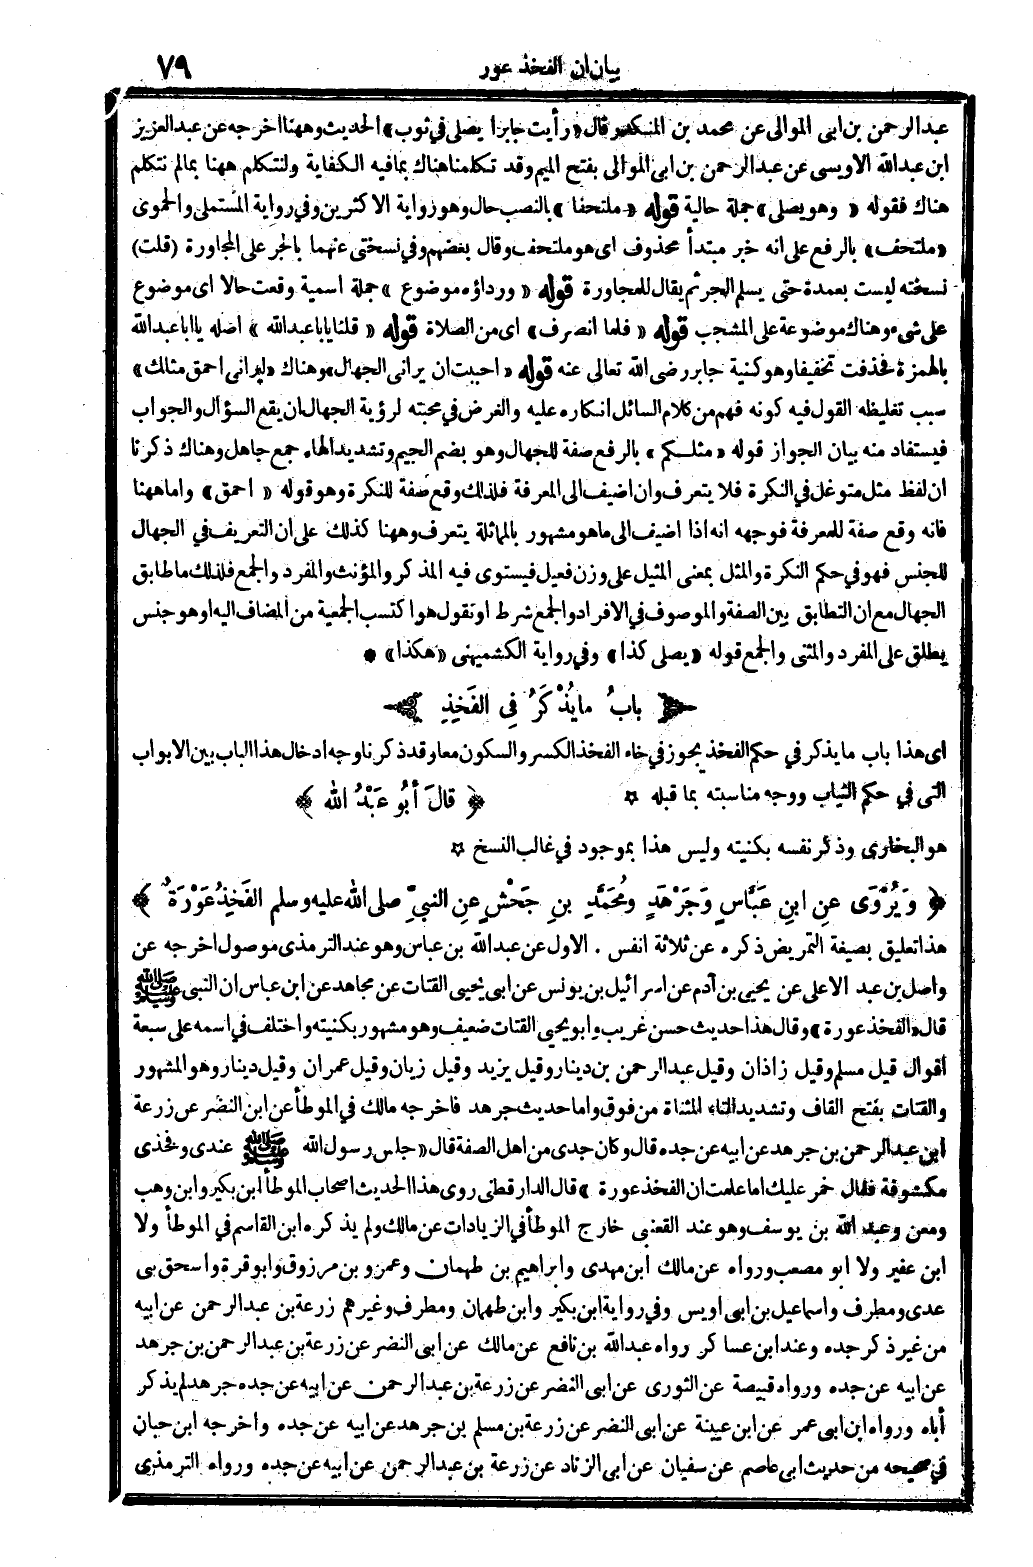 بيان ان الفخذ عور
٧٩
عبدالرحمن بن ابى الموالى عن محمد بن المنكدر قال «رأيت جابرا يصلى في ثوب» الحديث وههنا اخرجه عن عبدالعزيز
ابن عبدالله الاويسى عن عبدالرحمن بن ابى الموالى بفتح الميم وقد تكلمنا هناك بمافيه الكفاية ولنتكلم ههنا بمالم نتكلم
هناك فقوله « وهو يصلى» جملة حالية قوله «ملتحفا» بالنصب حال وهو رواية الاكثرين وفي رواية المستملى والحموى
«ملتحف» بالرفع على انه خبر مبتدأ محذوف اى هو ملتحف وقال بعضهم وفي نسختى عنهما بالجر على المجاورة (قلت)
نسخته ليست بعمدة حتى يسلم الجر ثم يقال للمجاورة قوله « ورداؤه موضوع » جملة اسمية وقعت حالا اى موضوع
على شىء وهناك موضوعة على المشجب قوله « فلما انصرف» اى من الصلاة قوله « قلنا يابا عبدالله » اصله يا ابا عبدالله
بالهمزة فحذفت تخفيفا وهو كنية جابر رضى الله تعالى عنه قوله « احببت ان يرانى الجهال» وهناك «ليرانى احمق مثلك»
سبب تغليظه القول فيه كونه فهم من كلام السائل انكاره عليه والغرض في محبته لرؤية الجهال ان يقع السؤال والجواب
فيستفاد منه بيان الجواز قوله «مثلكم» بالرفع صفة للجهال وهو بضم الجيم وتشديد الهاء جمع جاهل وهناك ذكرنا
ان لفظ مثل متوغل في النكرة فلا يتعرف وان اضيف الى المعرفة فلذلك وقع صفة للنكرة وهو قوله « احمق» واما ههنا
فانه وقع صفة للمعرفة فوجهه انه اذا اضيف الى ما هو مشهور بالمماثلة يتعرف وههنا كذلك على ان التعريف في الجهال
للجنس فهو في حكم النكرة والمثل بمعنى المثيل على وزن فعيل فيستوى فيه المذكر والمؤنث والمفرد والجمع فلذلك ما طابق
الجهال مع ان التطابق بين الصفة والموصوف في الافراد والجمع شرط او نقول هو اكتسب الجمعية من المضاف اليه او هو جنس
يطلق على المفرد والمثنى والجمع قوله «يصلى كذا» وفي رواية الكشميهنى «هكذا» ●
باب ما يُذْكَرُ فِى الفَخِذِ
اى هذا باب ما يذكر في حكم الفخذ يجوز في خاء الفخذ الكسر والسكون معا وقد ذكرنا وجه ادخال هذا الباب بين الابواب
التى في حكم الثياب ووجه مناسبته بما قبله ☆ ﴿ قالَ أَبُو عَبْدُ الله ﴾
هو البخارى وذكر نفسه بكنيته وليس هذا بموجود في غالب النسخ ☆
﴿ وَيُرْوَى عنِ ابنِ عَبَّاسٍ وَجَرْهَدٍ ومُحَمَّدِ بنِ جَحْشٍ عنِ النبيِّ صلى الله عليه وسلم الفَخِذُ عَوْرَةٌ ﴾
هذا تعليق بصيغة التمريض ذكره عن ثلاثة انفس . الاول عن عبدالله بن عباس وهو عند الترمذى موصول اخرجه عن
واصل بن عبد الاعلى عن يحيى بن آدم عن اسرائيل بن يونس عن ابى يحيى القتات عن مجاهد عن ابن عباس ان النبى ﷺ
قال «الفخذ عورة» وقال هذا حديث حسن غريب وابو يحيى القتات ضعيف وهو مشهور بكنيته واختلف في اسمه على سبعة
أقوال قيل مسلم وقيل زاذان وقيل عبدالرحمن بن دينار وقيل يزيد وقيل زبان وقيل عمران وقيل دينار وهو المشهور
والقتات بفتح القاف وتشديد التاء المثناة من فوق واما حديث جرهد فاخرجه مالك في الموطأ عن ابن النضر عن زرعة
ابن عبدالرحمن بن جرهد عن ابيه عن جده قال وكان جدى من اهل الصفة قال «جلس رسول الله ﷺ عندى وفخذى
مكشوفة فقال خمر عليك اما علمت ان الفخذ عورة » قال الدارقطنى روى هذا الحديث اصحاب الموطأ ابن بكير وابن وهب
ومعن وعبد الله بن يوسف وهو عند القعنبى خارج الموطأ في الزيادات عن مالك ولم يذكره ابن القاسم في الموطأ ولا
ابن عفير ولا ابو مصعب ورواه عن مالك ابن مهدى وابراهيم بن طهمان وعمرو بن مرزوق وابو قرة واسحق بى
عدى ومطرف واسماعيل بن ابى اويس وفي رواية ابن بكير وابن طهمان ومطرف وغيرهم زرعة بن عبدالرحمن عن ابيه
من غير ذكر جده وعند ابن عساكر رواه عبدالله بن نافع عن مالك عن ابى النضر عن زرعة بن عبدالرحمن بن جرهد
عن ابيه عن جده ورواه قبيصة عن الثورى عن ابى النضر عن زرعة بن عبدالرحمن عن ابيه عن جده جرهد لم يذكر
أباه ورواه ابن ابى عمر عن ابن عيينة عن ابى النضر عن زرعة بن مسلم بن جرهد عن ابيه عن جده واخرجه ابن حبان
في صحيحه من حديث ابى عاصم عن سفيان عن ابى الزناد عن زرعة بن عبدالرحمن عن ابيه عن جده ورواه الترمذى